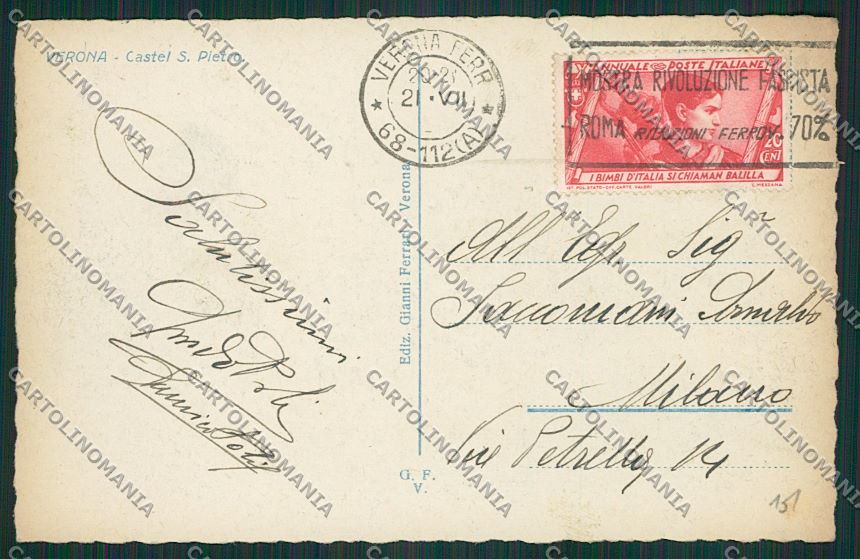 VERONA - Castel S. Pietro
VERONA FERR.
21 · VII
68-112 (A)
MOSTRA RIVOLUZIONE FASCISTA
ROMA RIDUZIONI FERROV. 70%
POSTE ITALIANE
20
CENT
I BIMBI D'ITALIA SI CHIAMAN BALILLA
IST. POL. STATO-OFF. CARTE VALORI
C. MEZZANA
Salutissimi
Ediz. Gianni Ferrari Verona
G. F.
V.
All' Egr. Sigr
Saccomani Arnaldo
Milano
Via Petrella 14
15
CARTOLINOMANIA